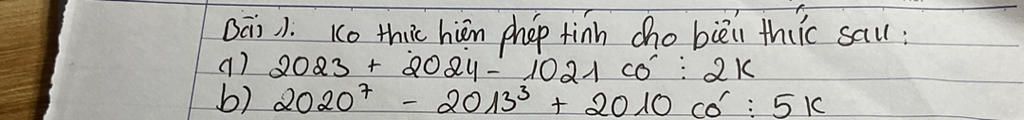 Bài 1: Ko thực hiện phép tính cho biểu thức sau:
a) 2023 + 2024 - 1021 có : 2 K
b) 2020⁷ - 2013³ + 2010 có : 5 K